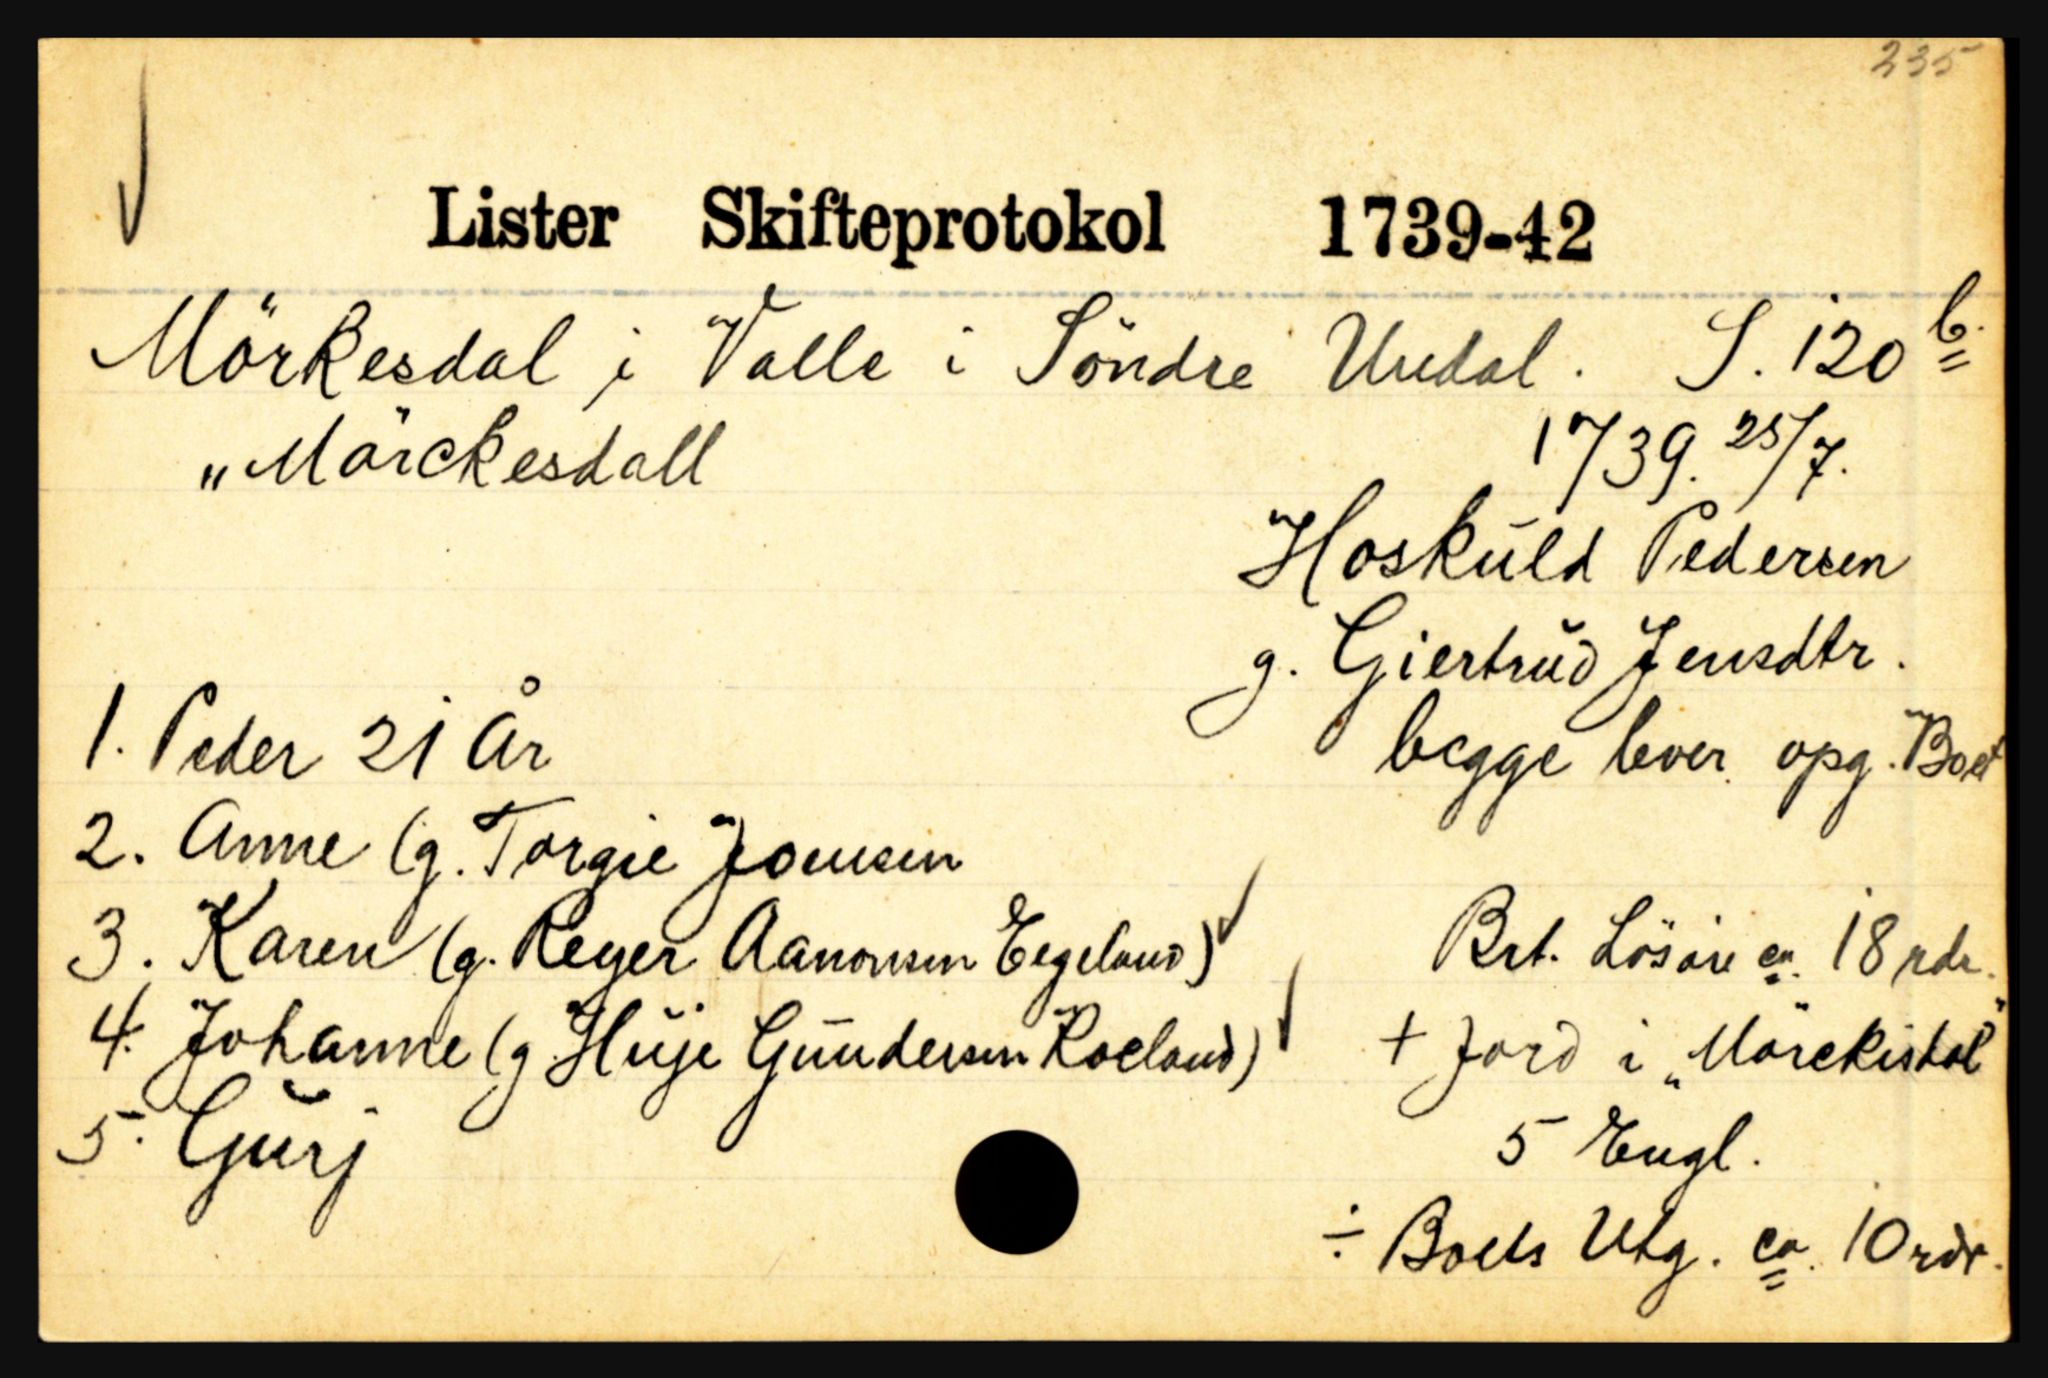 235
Lister Skifteprotokol 1739-42
Mörkesdal i Valle i Söndre Undal. S. 120 b.
„Mörckesdall
1739. 25/7.
Hoskuld Pedersen
g. Giertrud Jensdtr.
begge lever opg. Boet
1. Peder 21 År
2. Anne (g. Torgie Jonsen
3. Karen (g. Reyer Aanonsen Eegeland)
4. Johanne (g. Huje Gundersen Roeland)
5. Gurj
Brt. Lösöre ca. 18 rdr.
+ Jord i „Mörckisdal"
5 Engl.
÷ Boets Utg. ca. 10 rdr.